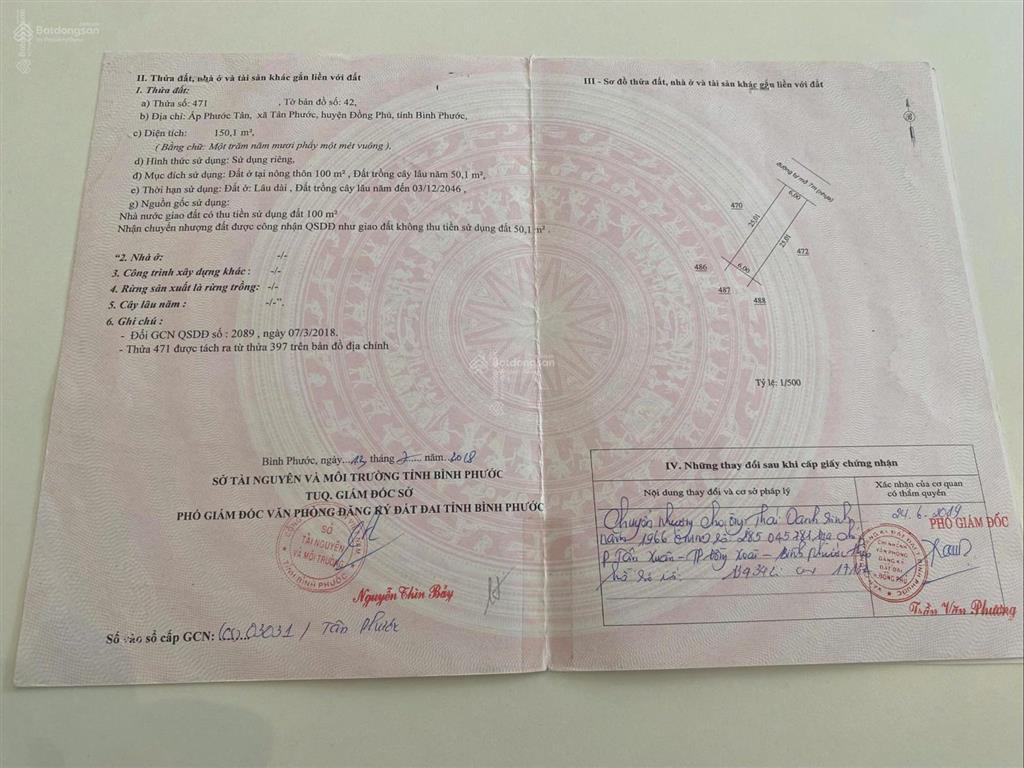 Batdongsan
by PropertyGuru
II. Thửa đất, nhà ở và tài sản khác gắn liền với đất
1. Thửa đất:
a) Thửa số: 471 , Tờ bản đồ số: 42,
b) Địa chỉ: Ấp Phước Tân, xã Tân Phước, huyện Đồng Phú, tỉnh Bình Phước,
c) Diện tích: 150,1 m²,
( Bằng chữ: Một trăm năm mươi phẩy một mét vuông).
d) Hình thức sử dụng: Sử dụng riêng,
đ) Mục đích sử dụng: Đất ở tại nông thôn 100 m² , Đất trồng cây lâu năm 50,1 m²,
e) Thời hạn sử dụng: Đất ở: Lâu dài , Đất trồng cây lâu năm đến 03/12/2046 ,
g) Nguồn gốc sử dụng:
Nhà nước giao đất có thu tiền sử dụng đất 100 m²
Nhận chuyển nhượng đất được công nhận QSDĐ như giao đất không thu tiền sử dụng đất 50,1 m² .
“2. Nhà ở: -/-
3. Công trình xây dựng khác : -/-
4. Rừng sản xuất là rừng trồng: -/-
5. Cây lâu năm : -/-”.
6. Ghi chú :
- Đổi GCN QSDĐ số : 2089 , ngày 07/3/2018.
- Thửa 471 được tách ra từ thửa 397 trên bản đồ địa chính
Bình Phước, ngày...12 tháng 7 năm..2018
SỞ TÀI NGUYÊN VÀ MÔI TRƯỜNG TỈNH BÌNH PHƯỚC
TUQ. GIÁM ĐỐC SỞ
PHÓ GIÁM ĐỐC VĂN PHÒNG ĐĂNG KÝ ĐẤT ĐAI TỈNH BÌNH PHƯỚC
SỞ
TÀI NGUYÊN
VÀ MÔI TRƯỜNG
TỈNH BÌNH PHƯỚC
Nguyễn Thìn Bảy
Số vào sổ cấp GCN: 03031 / Tân Phước
III - Sơ đồ thửa đất, nhà ở và tài sản khác gắn liền với đất
đường tự mở 7m (nhựa)
6,00
470
25,01
25,01
472
486
6,00
487
488
Tỷ lệ: 1/500
Batdongsan
by PropertyGuru
IV. Những thay đổi sau khi cấp giấy chứng nhận
Nội dung thay đổi và cơ sở pháp lý
Xác nhận của cơ quan
có thẩm quyền
Chuyển nhượng cho ông Thái Danh
năm 1966 CMND số 285 045 781 địa chỉ
P Tân Xuân - TP Đồng Xoài - Bình Phước
hồ sơ số
24.6.2019
PHÓ GIÁM ĐỐC
CHI NHÁNH
VĂN PHÒNG
ĐĂNG KÝ
ĐẤT ĐAI
ĐỒNG PHÚ
Trần Văn Phương